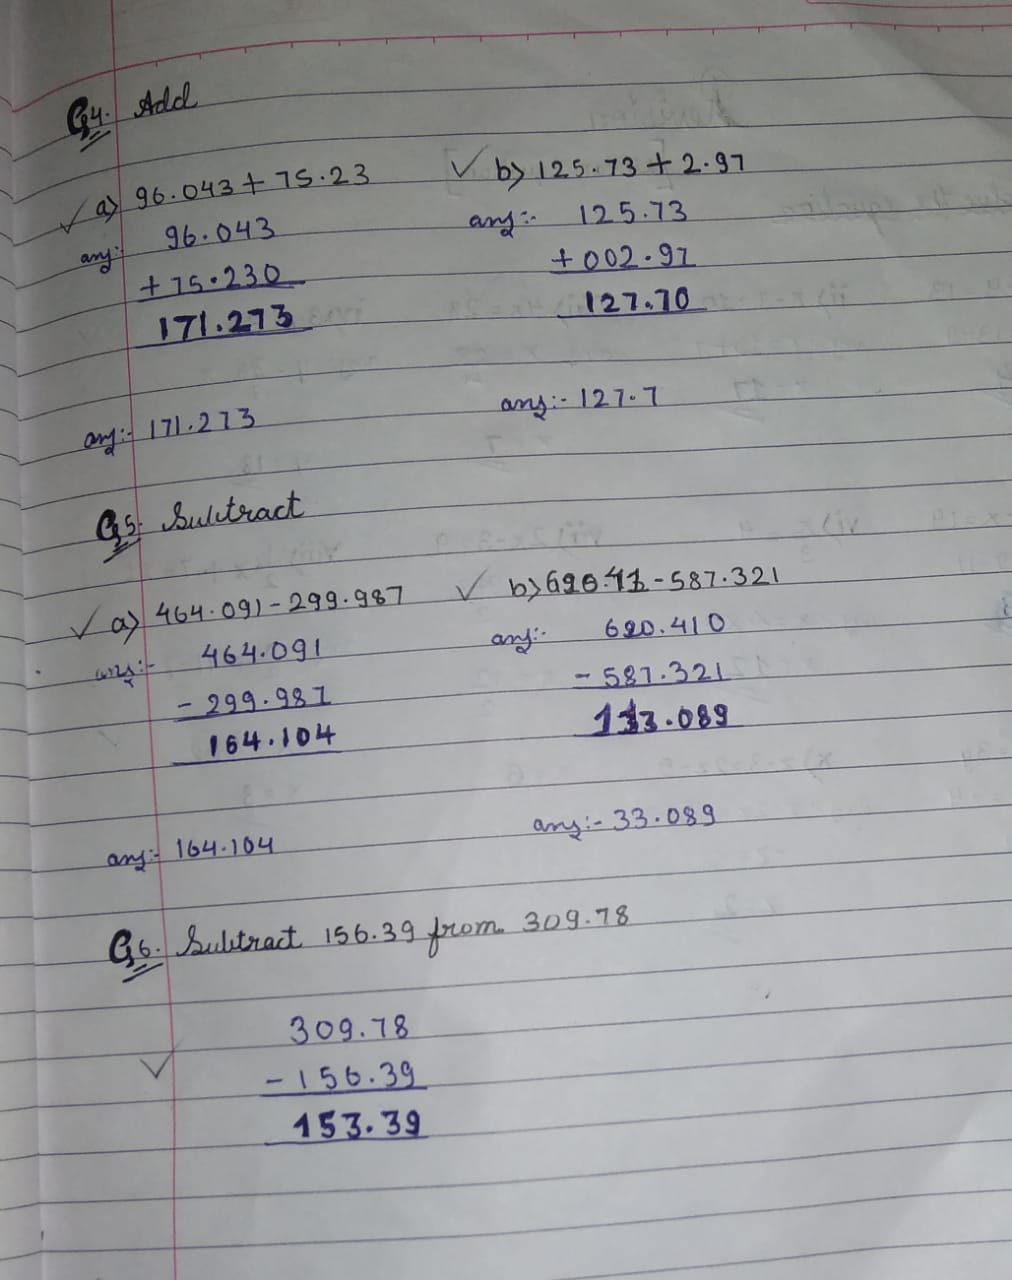 Q4. Add
a) 96.043 + 75.23
ans:- 96.043
+ 75.230
171.273
ans:- 171.273
b) 125.73 + 2.97
ans:- 125.73
+ 002.97
127.70
ans:- 127.7
Q5. Subtract
a) 464.091 - 299.987
ans:- 464.091
- 299.987
164.104
ans:- 164.104
b) - 587.321
ans:- 620.410
- 587.321
.089
ans:- 33.089
Q6. Subtract 156.39 from 309.78
309.78
- 156.39
153.39